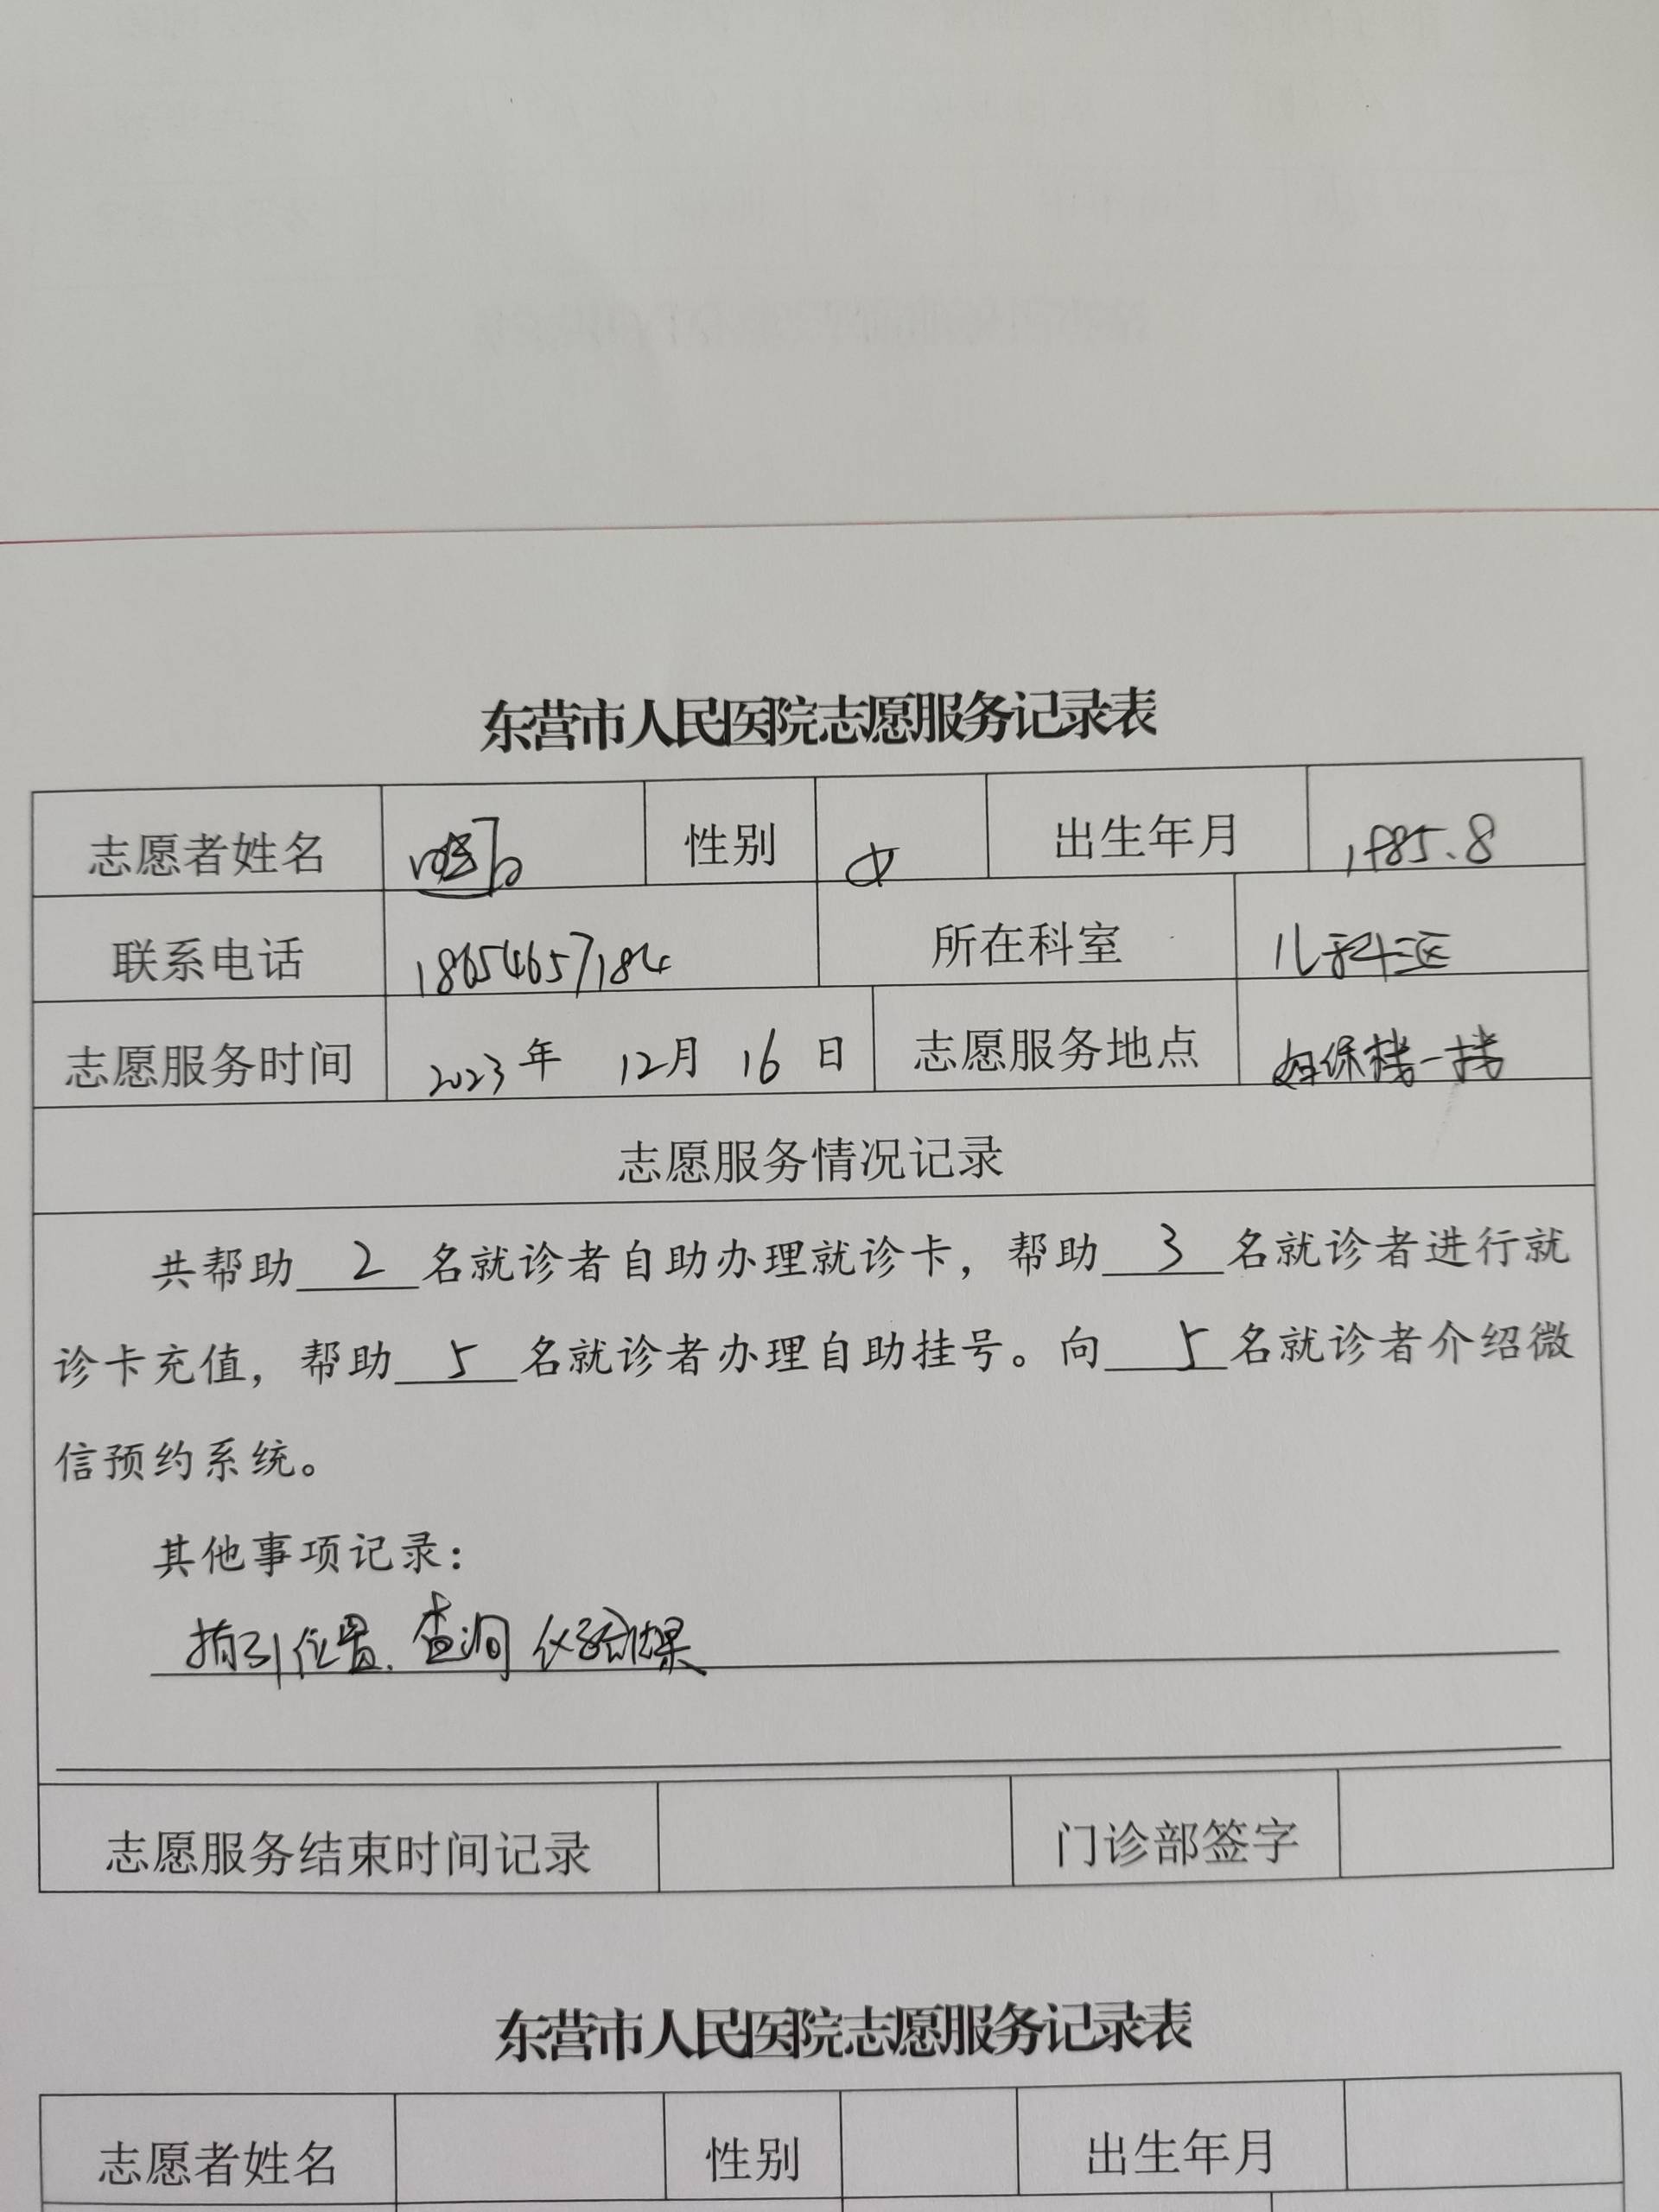 东营市人民医院志愿服务记录表
志愿者姓名 性别 女 出生年月 1985.8
联系电话 18654657184 所在科室 儿科三区
志愿服务时间 2023年 12月 16日 志愿服务地点 妇保楼一楼
志愿服务情况记录
共帮助 2 名就诊者自助办理就诊卡，帮助 3 名就诊者进行就
诊卡充值，帮助 5 名就诊者办理自助挂号。向 5 名就诊者介绍微
信预约系统。
其他事项记录：
指引位置、查询 结果
志愿服务结束时间记录 门诊部签字
东营市人民医院志愿服务记录表
志愿者姓名 性别 出生年月